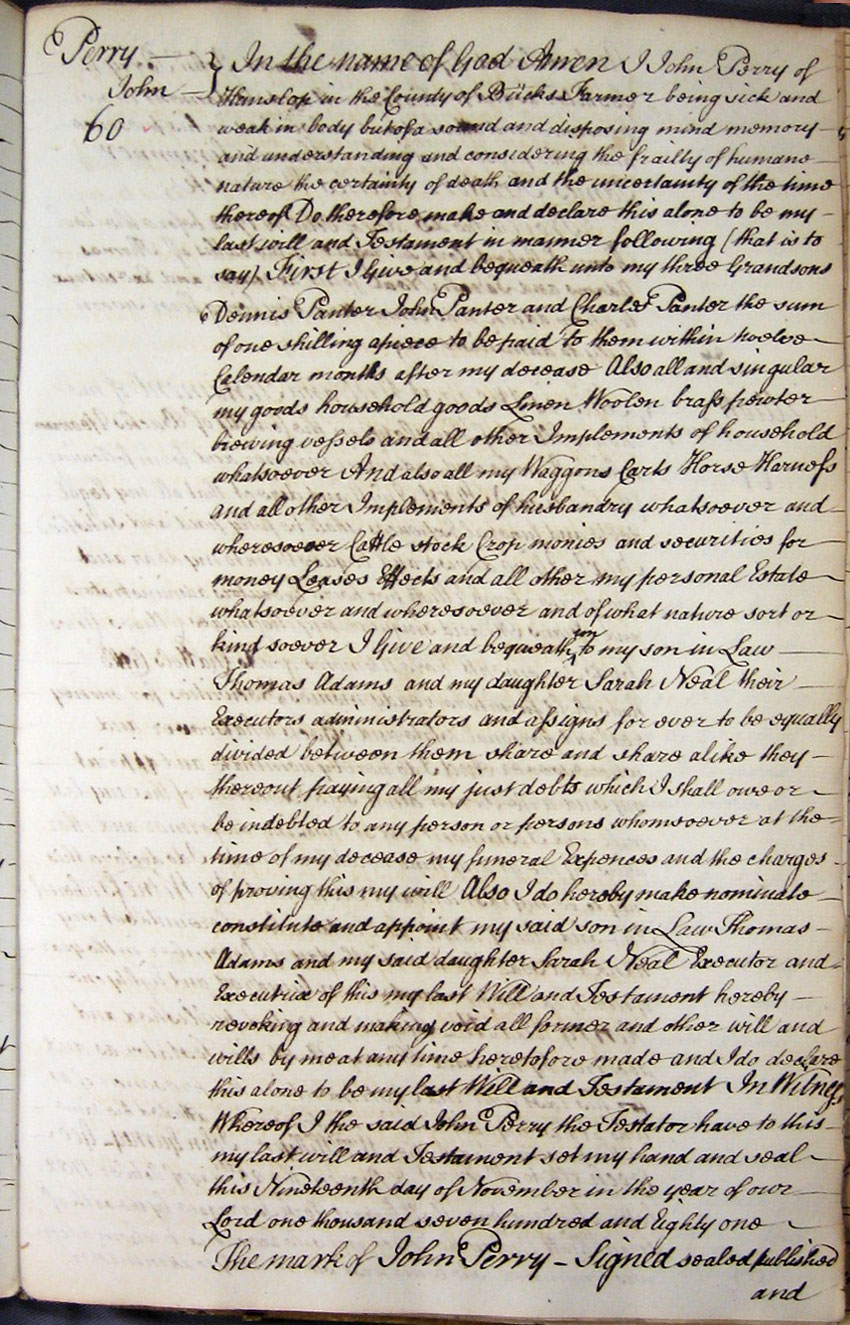 Perry
John
60
In the name of God Amen I John Perry of
Hanslop in the County of Bucks Farmer being sick and
weak in body but of a sound and disposing mind memory
and understanding and considering the frailty of humane
nature the certainty of death and the uncertainty of the time
thereof Do therefore make and declare this alone to be my
last will and Testament in manner following (that is to
say) First I Give and bequeath unto my three Grandsons
Dennis Panter John Panter and Charles Panter the sum
of one shilling apiece to be paid to them within twelve
Calendar months after my decease Also all and singular
my goods household goods Linen Woolen brass pewter
brewing vessels and all other Implements of household
whatsoever And also all my Waggons Carts Horse Harness
and all other Implements of husbandry whatsoever and
wheresoever Cattle stock Crop monies and securities for
money Leases Effects and all other my personal Estate
whatsoever and wheresoever and of what nature sort or
kind soever I Give and bequeath unto my son in Law
Thomas Adams and my daughter Sarah Neal their
Executors administrators and assigns for ever to be equally
divided between them share and share alike they
thereout paying all my just debts which I shall owe or
be indebted to any person or persons whomsoever at the
time of my decease my funeral Expences and the charges
of proving this my will Also I do hereby make nominate
constitute and appoint my said son in Law Thomas
Adams and my said daughter Sarah Neal Executor and
Executrix of this my last Will and Testament hereby
revoking and making void all former and other will and
wills by me at any time heretofore made and I do declare
this alone to be my last Will and Testament In Witness
Whereof I the said John Perry the Testator have to this
my last will and Testament set my hand and seal
this Nineteenth day of November in the year of our
Lord one thousand seven hundred and Eighty one
The mark of John Perry - Signed sealed published
and